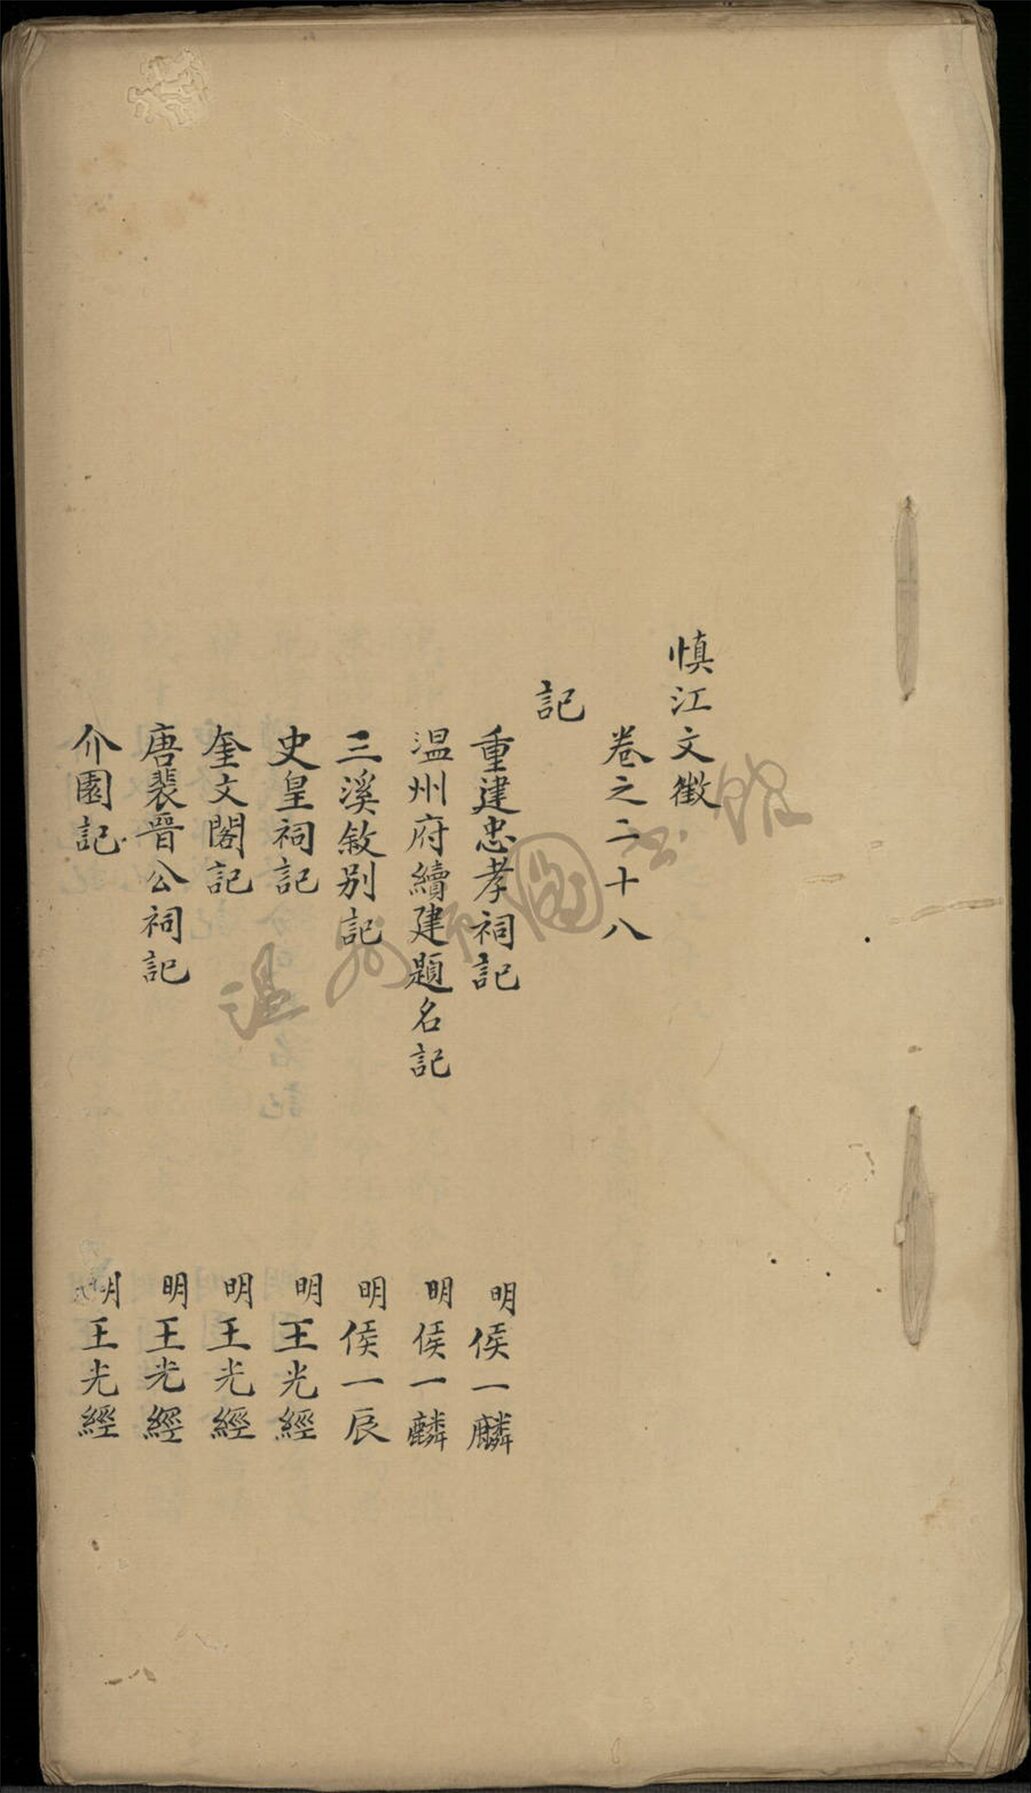 慎江文徵
卷之二十八
記
重建忠孝祠記 明侯一麟
温州府續建題名記 明侯一麟
三溪敘別記 明侯一辰
史皇祠記 明王光經
奎文閣記 明王光經
唐裴晉公祠記 明王光經
介園記 明王光經
温州市圖书館